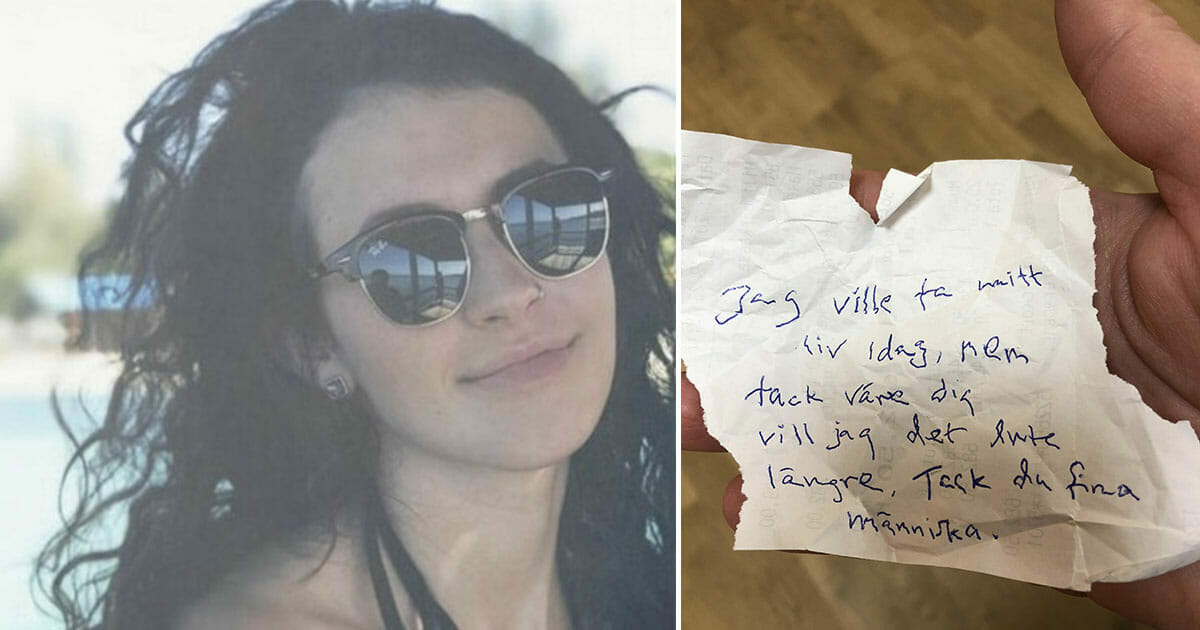 Ray-Ban
Jag ville ta mitt
liv idag, men
tack vare dig
vill jag det inte
längre. Tack du fina
människa.